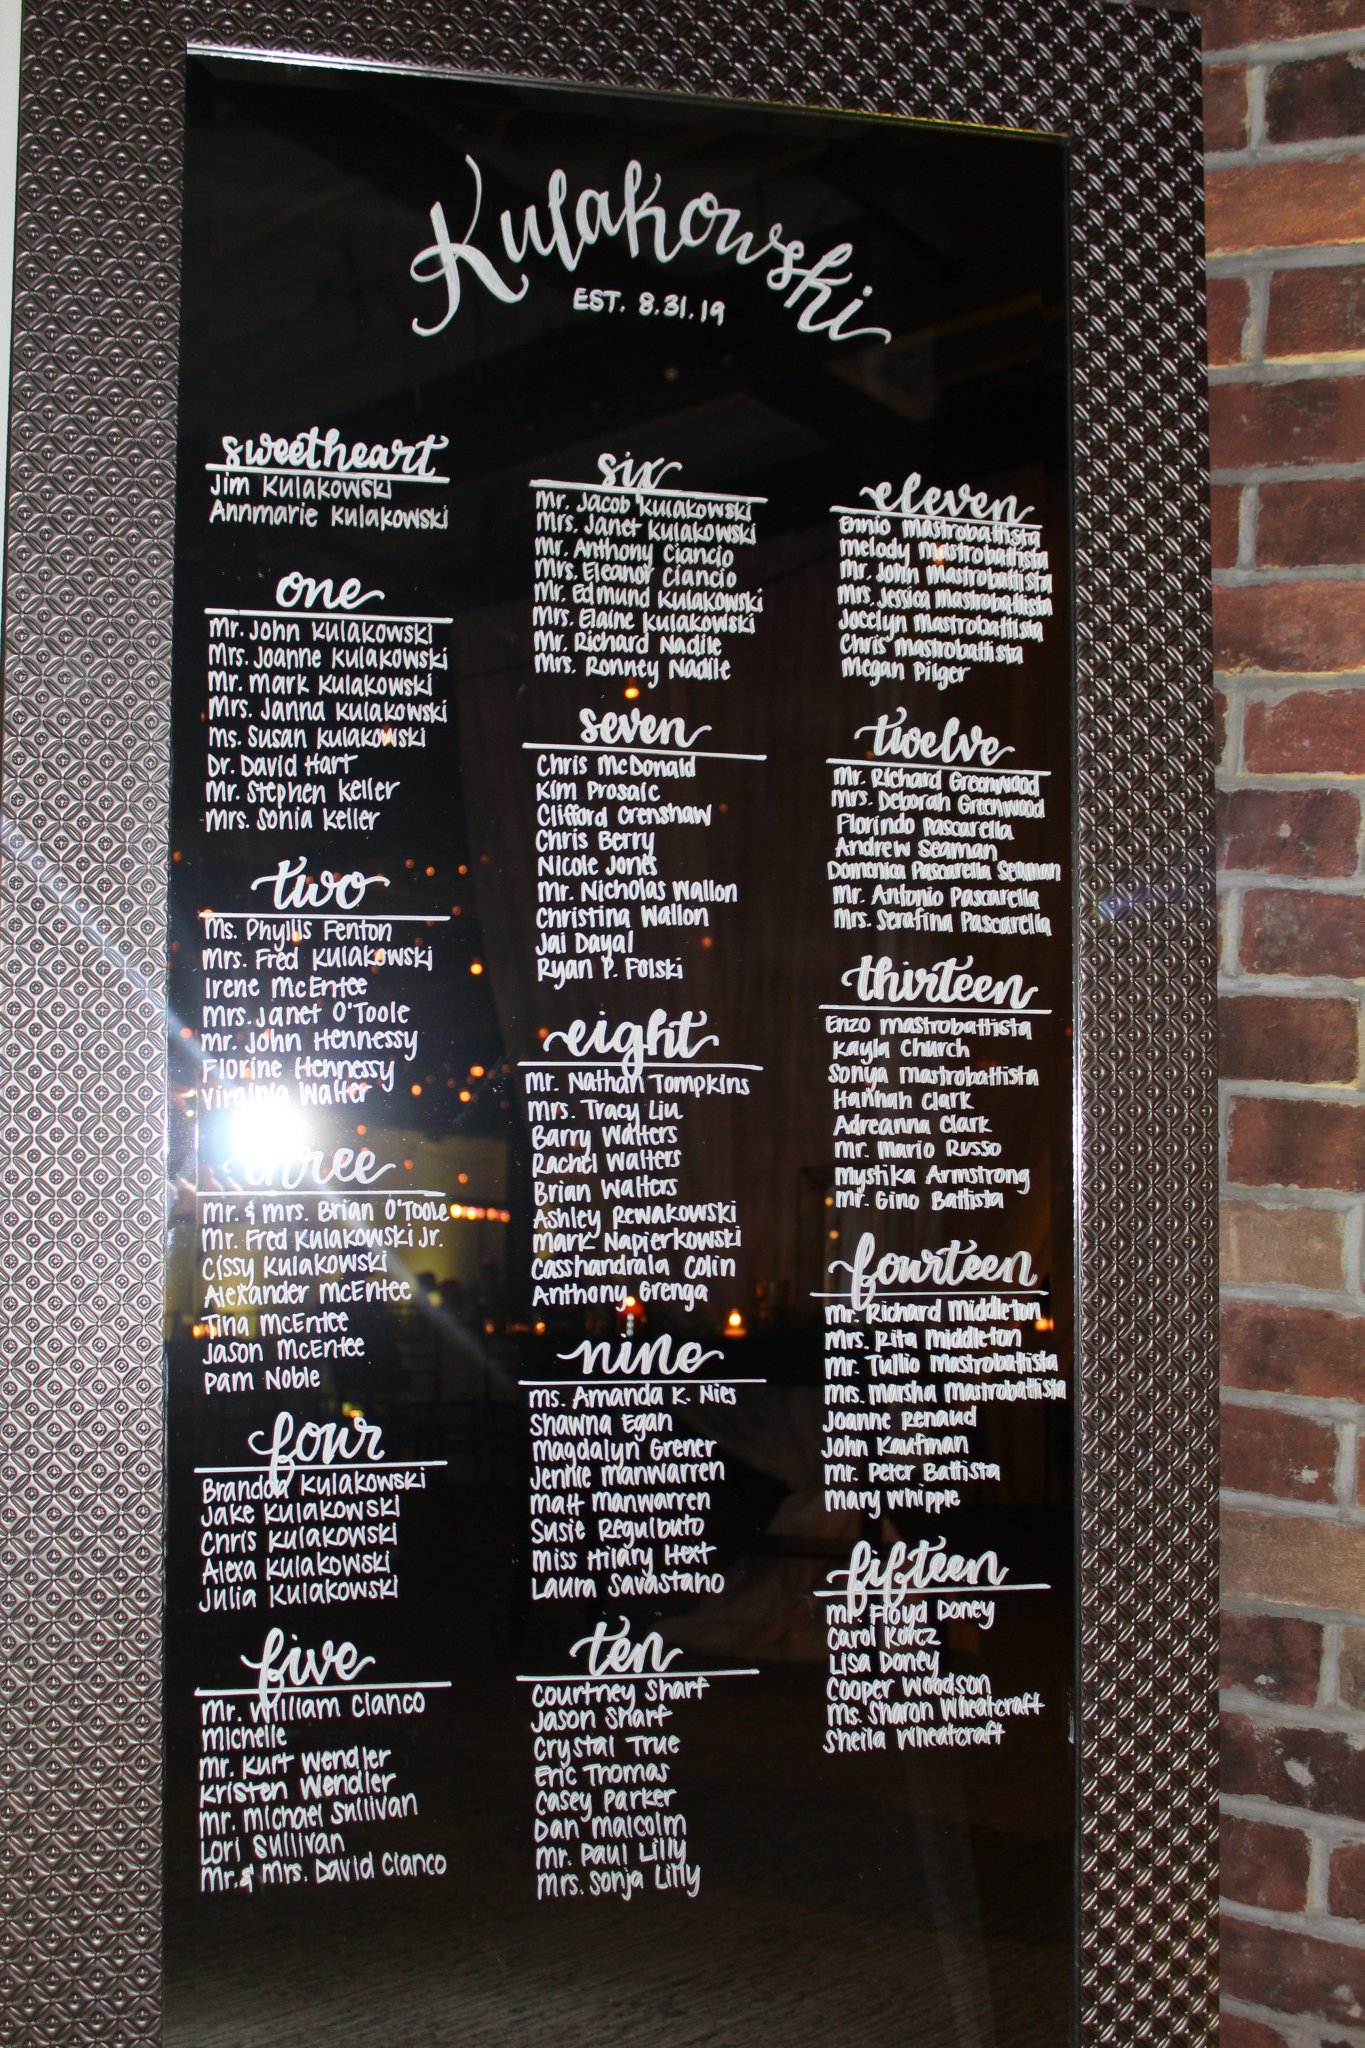 Kulakowski
EST. 8.31.19
sweetheart
Jim Kulakowski
Annmarie Kulakowski
one
Mr. John Kulakowski
Mrs. Joanne Kulakowski
Mr. Mark Kulakowski
Mrs. Janna Kulakowski
Ms. Susan Kulakowski
Dr. David Hart
Mr. Stephen Keller
Mrs. Sonia Keller
two
Ms. Phyllis Fenton
Mrs. Fred Kulakowski
Irene McEntee
Mrs. Janet O'Toole
Mr. John Hennessy
Florine Hennessy
Virginia Walter
three
Mr. & Mrs. Brian O'Toole
Mr. Fred Kulakowski Jr.
Cissy Kulakowski
Alexander McEntee
Tina McEntee
Jason McEntee
Pam Noble
four
Brandon Kulakowski
Jake Kulakowski
Chris Kulakowski
Alexa Kulakowski
Julia Kulakowski
five
Mr. William Cianco
Michelle
Mr. Kurt Wendler
Kristen Wendler
Mr. Michael Sullivan
Lori Sullivan
Mr. & Mrs. David Cianco
six
Mr. Jacob Kulakowski
Mrs. Janet Kulakowski
Mr. Anthony Ciancio
Mrs. Eleanor Ciancio
Mr. Edmund Kulakowski
Mrs. Elaine Kulakowski
Mr. Richard Nadile
Mrs. Ronney Nadile
seven
Chris McDonald
Kim Prosaic
Clifford Crenshaw
Chris Berry
Nicole Jones
Mr. Nicholas Wallon
Christina Wallon
Jai Dayal
Ryan P. Folski
eight
Mr. Nathan Tompkins
Mrs. Tracy Liu
Barry Walters
Rachel Walters
Brian Walters
Ashley Rewakowski
Mark Napierkowski
Casshandrala Colin
Anthony Grenga
nine
Ms. Amanda K. Nies
Shawna Egan
Magdalyn Grener
Jennie Manwarren
Matt Manwarren
Susie Regulbuto
Miss Hilary Hext
Laura Savastano
ten
Courtney Sharf
Jason Sharf
Crystal True
Eric Thomas
Casey Parker
Dan Malcolm
Mr. Paul Lilly
Mrs. Sonja Lilly
eleven
Ennio Mastrobattista
Melody Mastrobattista
Mr. John Mastrobattista
Mrs. Jessica Mastrobattista
Jocelyn Mastrobattista
Chris Mastrobattista
Megan Pilger
twelve
Mr. Richard Greenwood
Mrs. Deborah Greenwood
Florindo Pascarella
Andrew Seaman
Domenica Pascarella Seaman
Mr. Antonio Pascarella
Mrs. Serafina Pascarella
thirteen
Enzo Mastrobattista
Kayla Church
Sonya Mastrobattista
Hannah Clark
Adreanna Clark
Mr. Mario Russo
Mystika Armstrong
Mr. Gino Battista
fourteen
Mr. Richard Middleton
Mrs. Rita Middleton
Mr. Tullio Mastrobattista
Mrs. Marsha Mastrobattista
Joanne Renaud
John Kaufman
Mr. Peter Battista
Mary Whipple
fifteen
Mr. Floyd Doney
Carol Korcz
Lisa Doney
Cooper Woodson
Ms. Sharon Wheatcraft
Sheila Wheatcraft